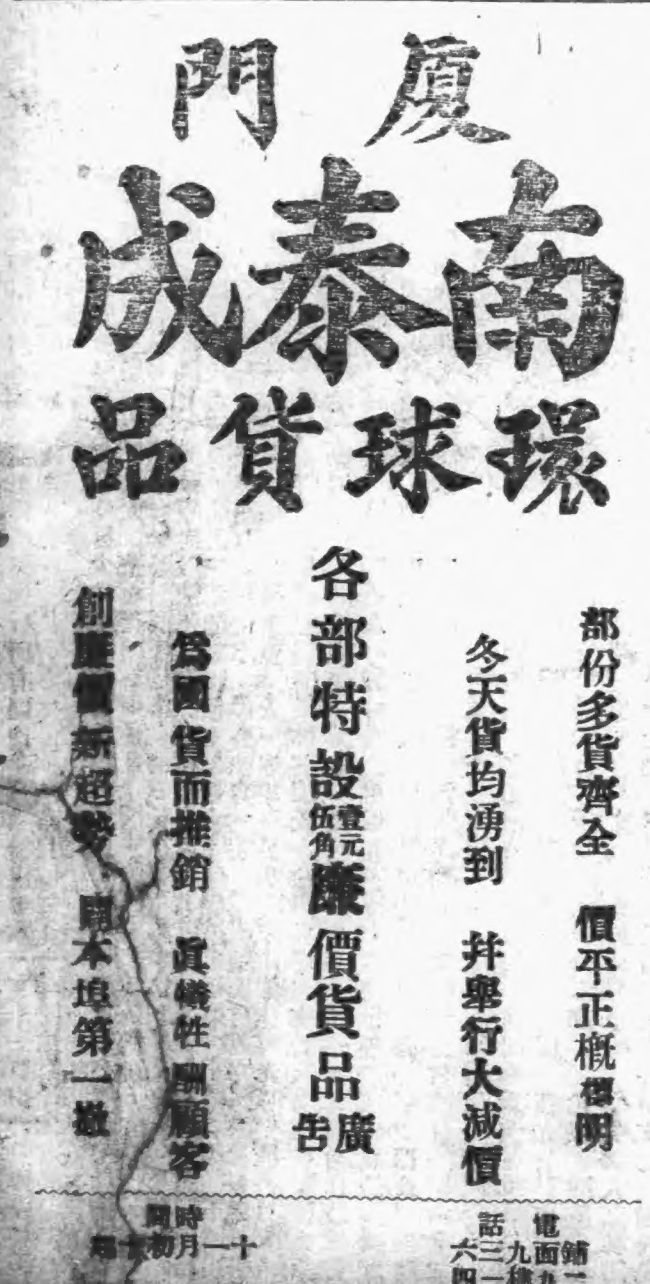 廈門
南泰成
環球貨品
部份多貨齊全 價平正概標明
冬天貨均湧到 并舉行大減價
各部特設壹元伍角廉價貨品廣告
爲國貨而推銷 眞犧牲酬顧客
創廉價新超勢 開本埠第一
電話
時間
十一月初